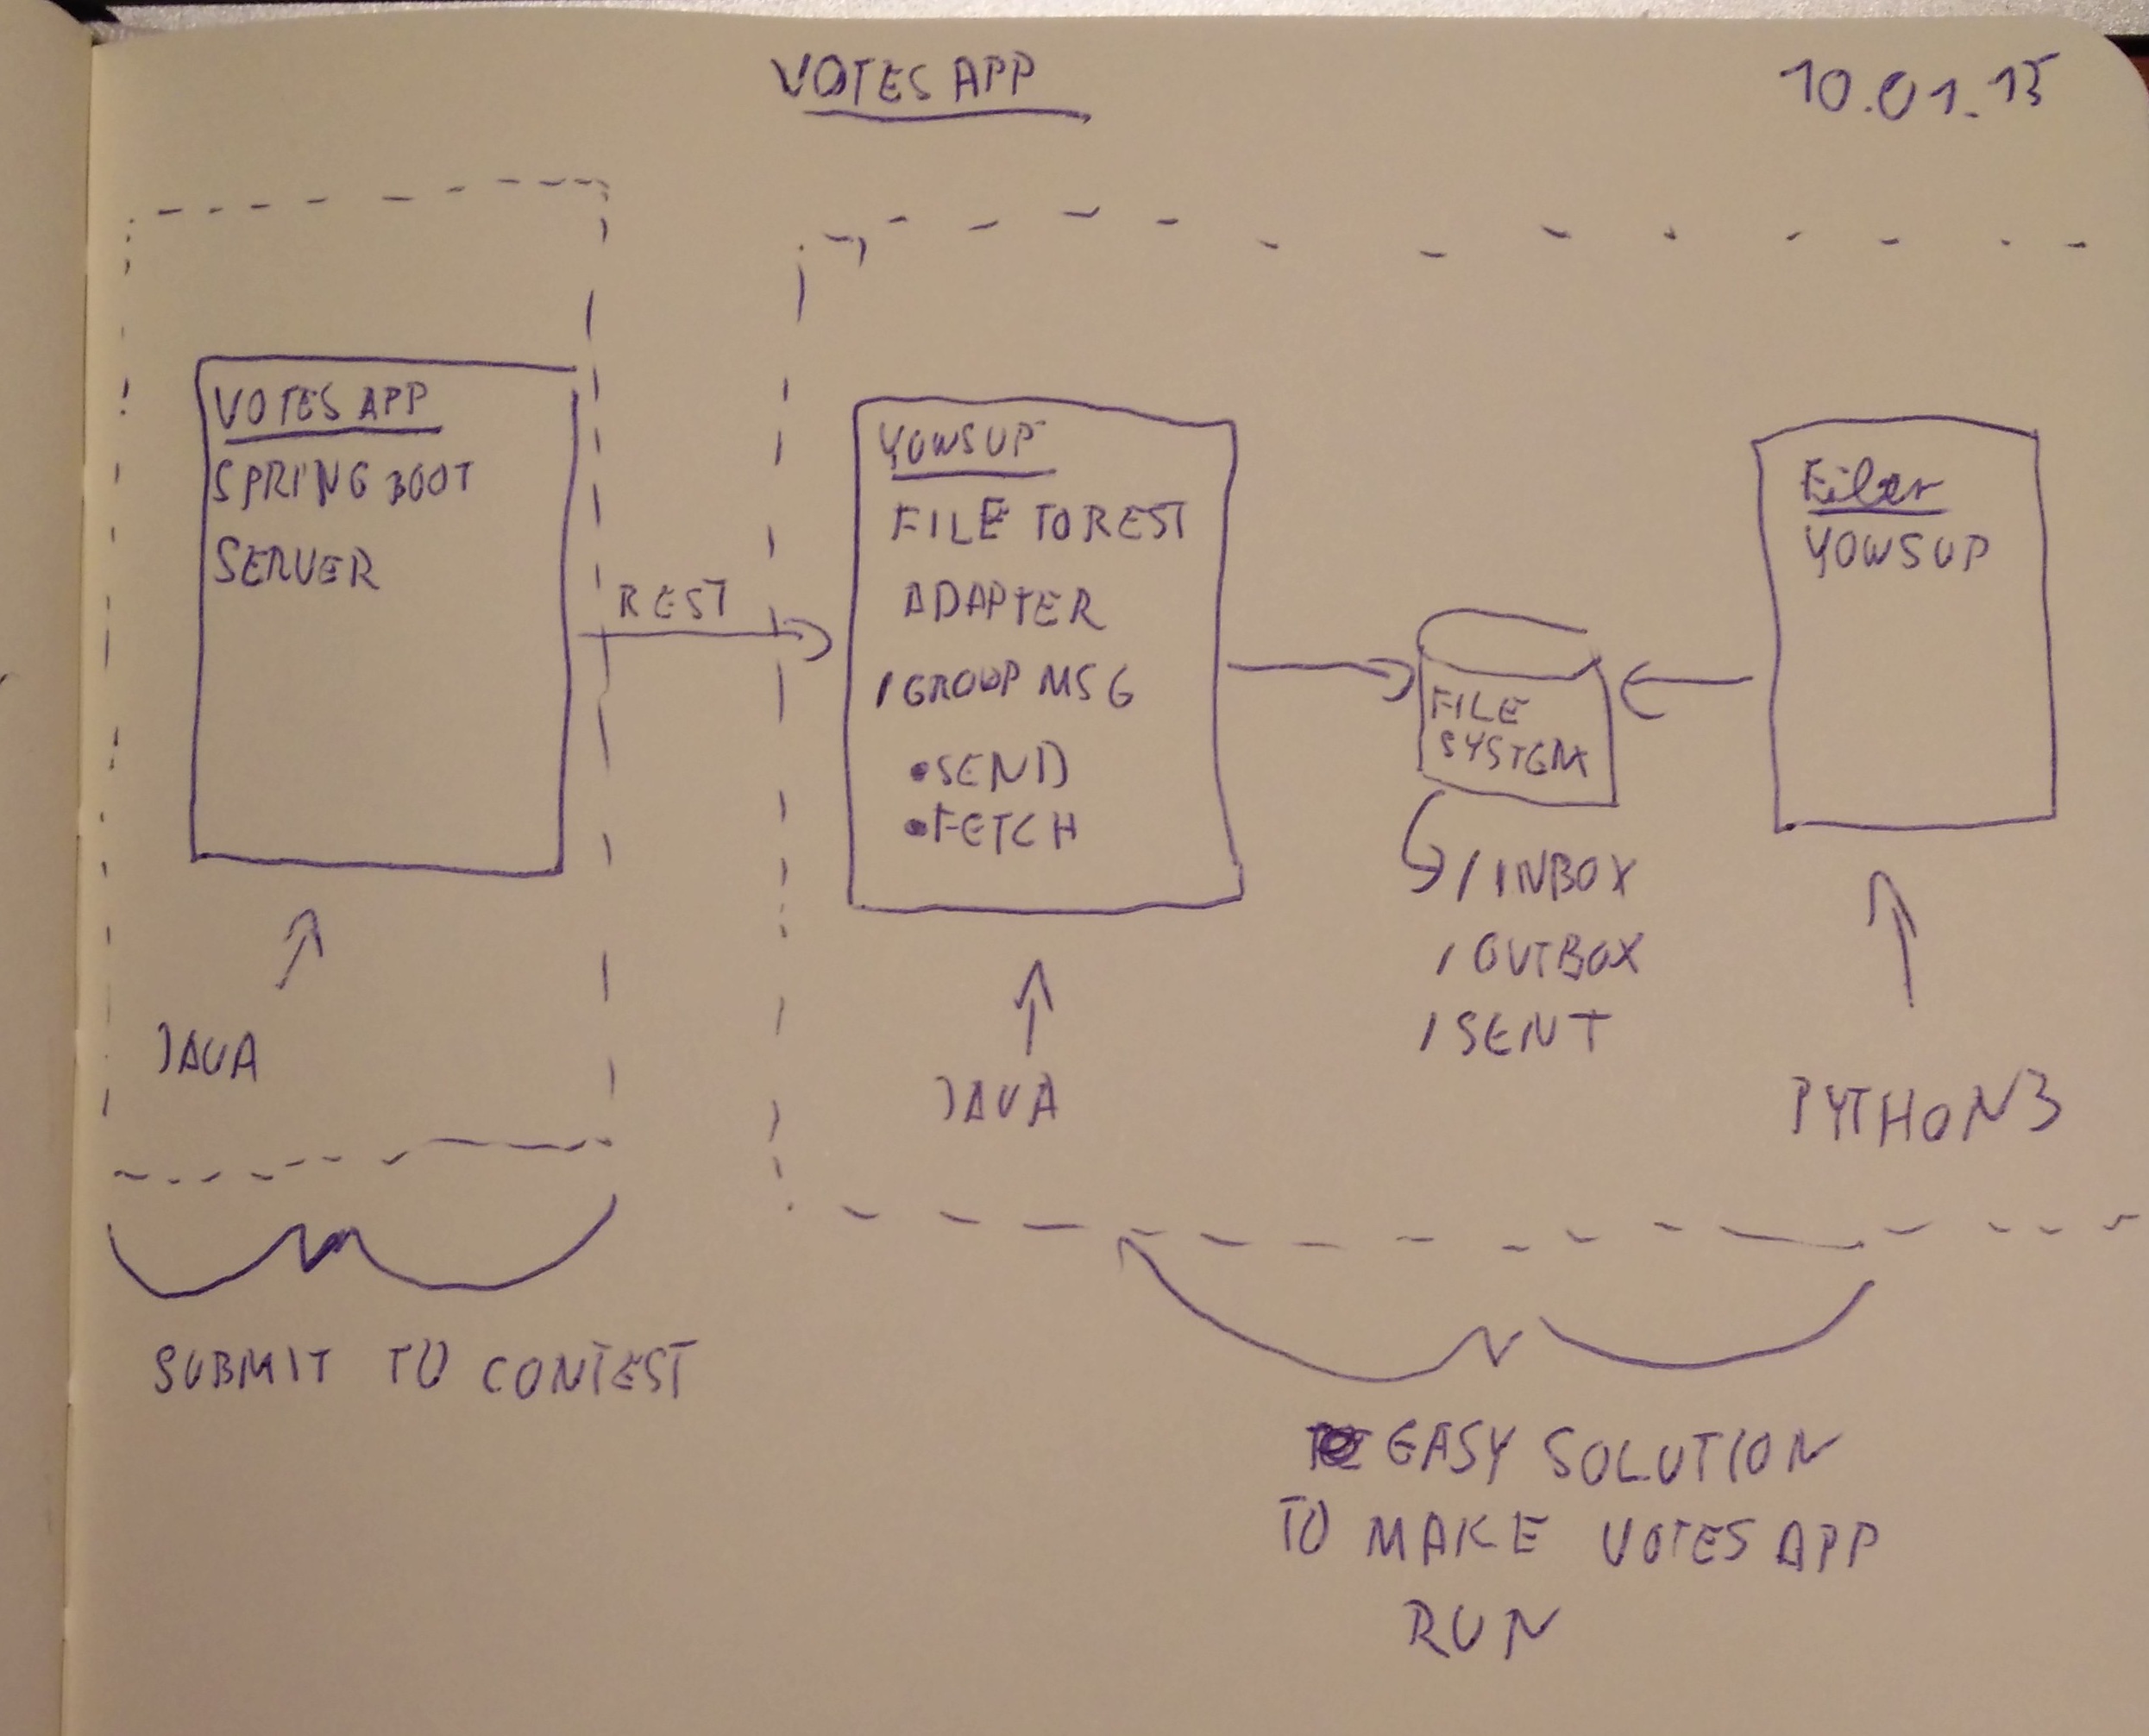 VOTES APP
10.01.15
VOTES APP
SPRING BOOT
SERVER
REST
YOWSUP
FILE TO REST
ADAPTER
/GROUP MSG
•SEND
•FETCH
FILE
SYSTEM
YOWSUP
/INBOX
/OUTBOX
/SENT
JAVA
JAVA
PYTHON3
SUBMIT TO CONTEST
EASY SOLUTION
TO MAKE VOTES APP
RUN